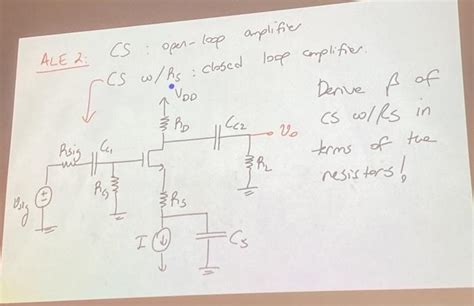 ALE 2: CS : open-loop amplifier
CS w/RS : closed loop amplifier.
VDD
RD
CC2
vo
RL
Rsig
CC1
RG
vsig
RS
I
CS
Derive β of
CS w/RS in
terms of the
resistors!